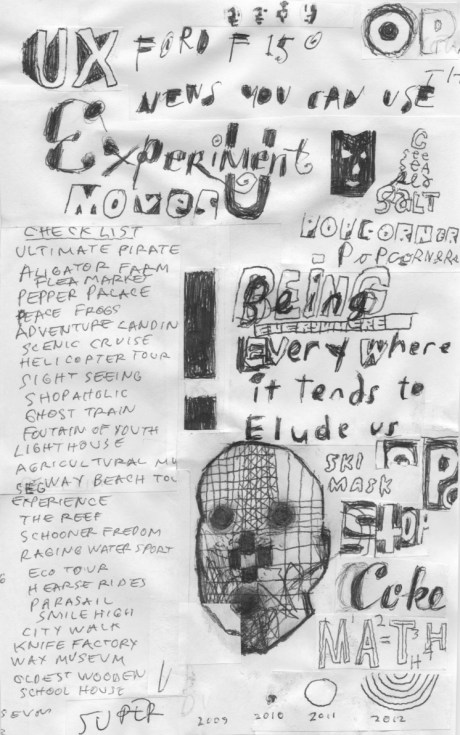 2009
UX
FORD F150
OP
TH
NEWS YOU CAN USE
Experiment
MONEY
C
SEA
SALT
POPCORNER
POPCORNERS
CHECK LIST
ULTIMATE PIRATE
ALIGATOR FARM
FLEA MARKET
PEPPER PALACE
PEACE FROGS
ADVENTURE LANDIN
SCENIC CRUISE
HELICOPTER TOUR
SIGHT SEEING
SHOPAHOLIC
GHOST TRAIN
FOUTAIN OF YOUTH
LIGHTHOUSE
AGRICULTURAL MU
SEGWAY BEACH TOU
EXPERIENCE
THE REEF
SCHOONER FREDOM
RAGING WATER SPORT
ECO TOUR
HEARSE RIDES
PARASAIL
SMILE HIGH
CITY WALK
KNIFE FACTORY
WAX MUSEUM
OLDEST WOODEN
SCHOOL HOUSE
SEUM
SUPER
!
BEING
Being
EVERYWHERE
Every Where
it tends to
Elude us
SKI
MASK
STOP
Coke
M¹A²T³H⁴
2009 2010 2011 2012